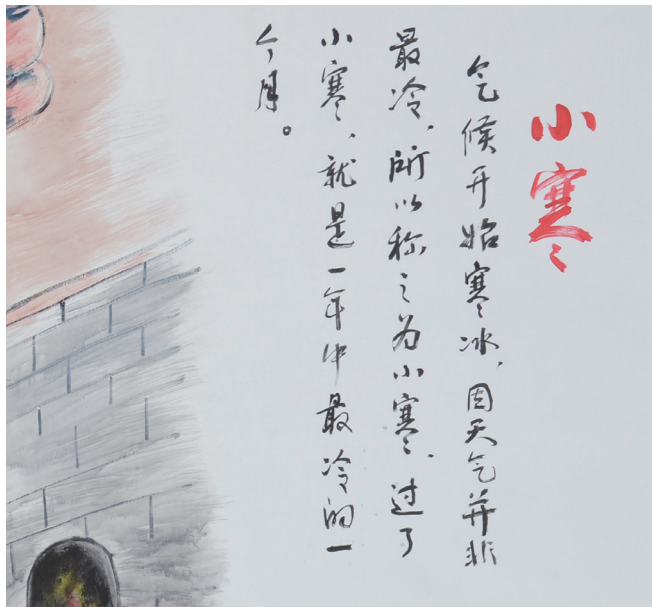 小寒
气候开始寒冰，因天气并非
最冷，所以称之为小寒、过了
小寒、就是一年中最冷的一
个月。